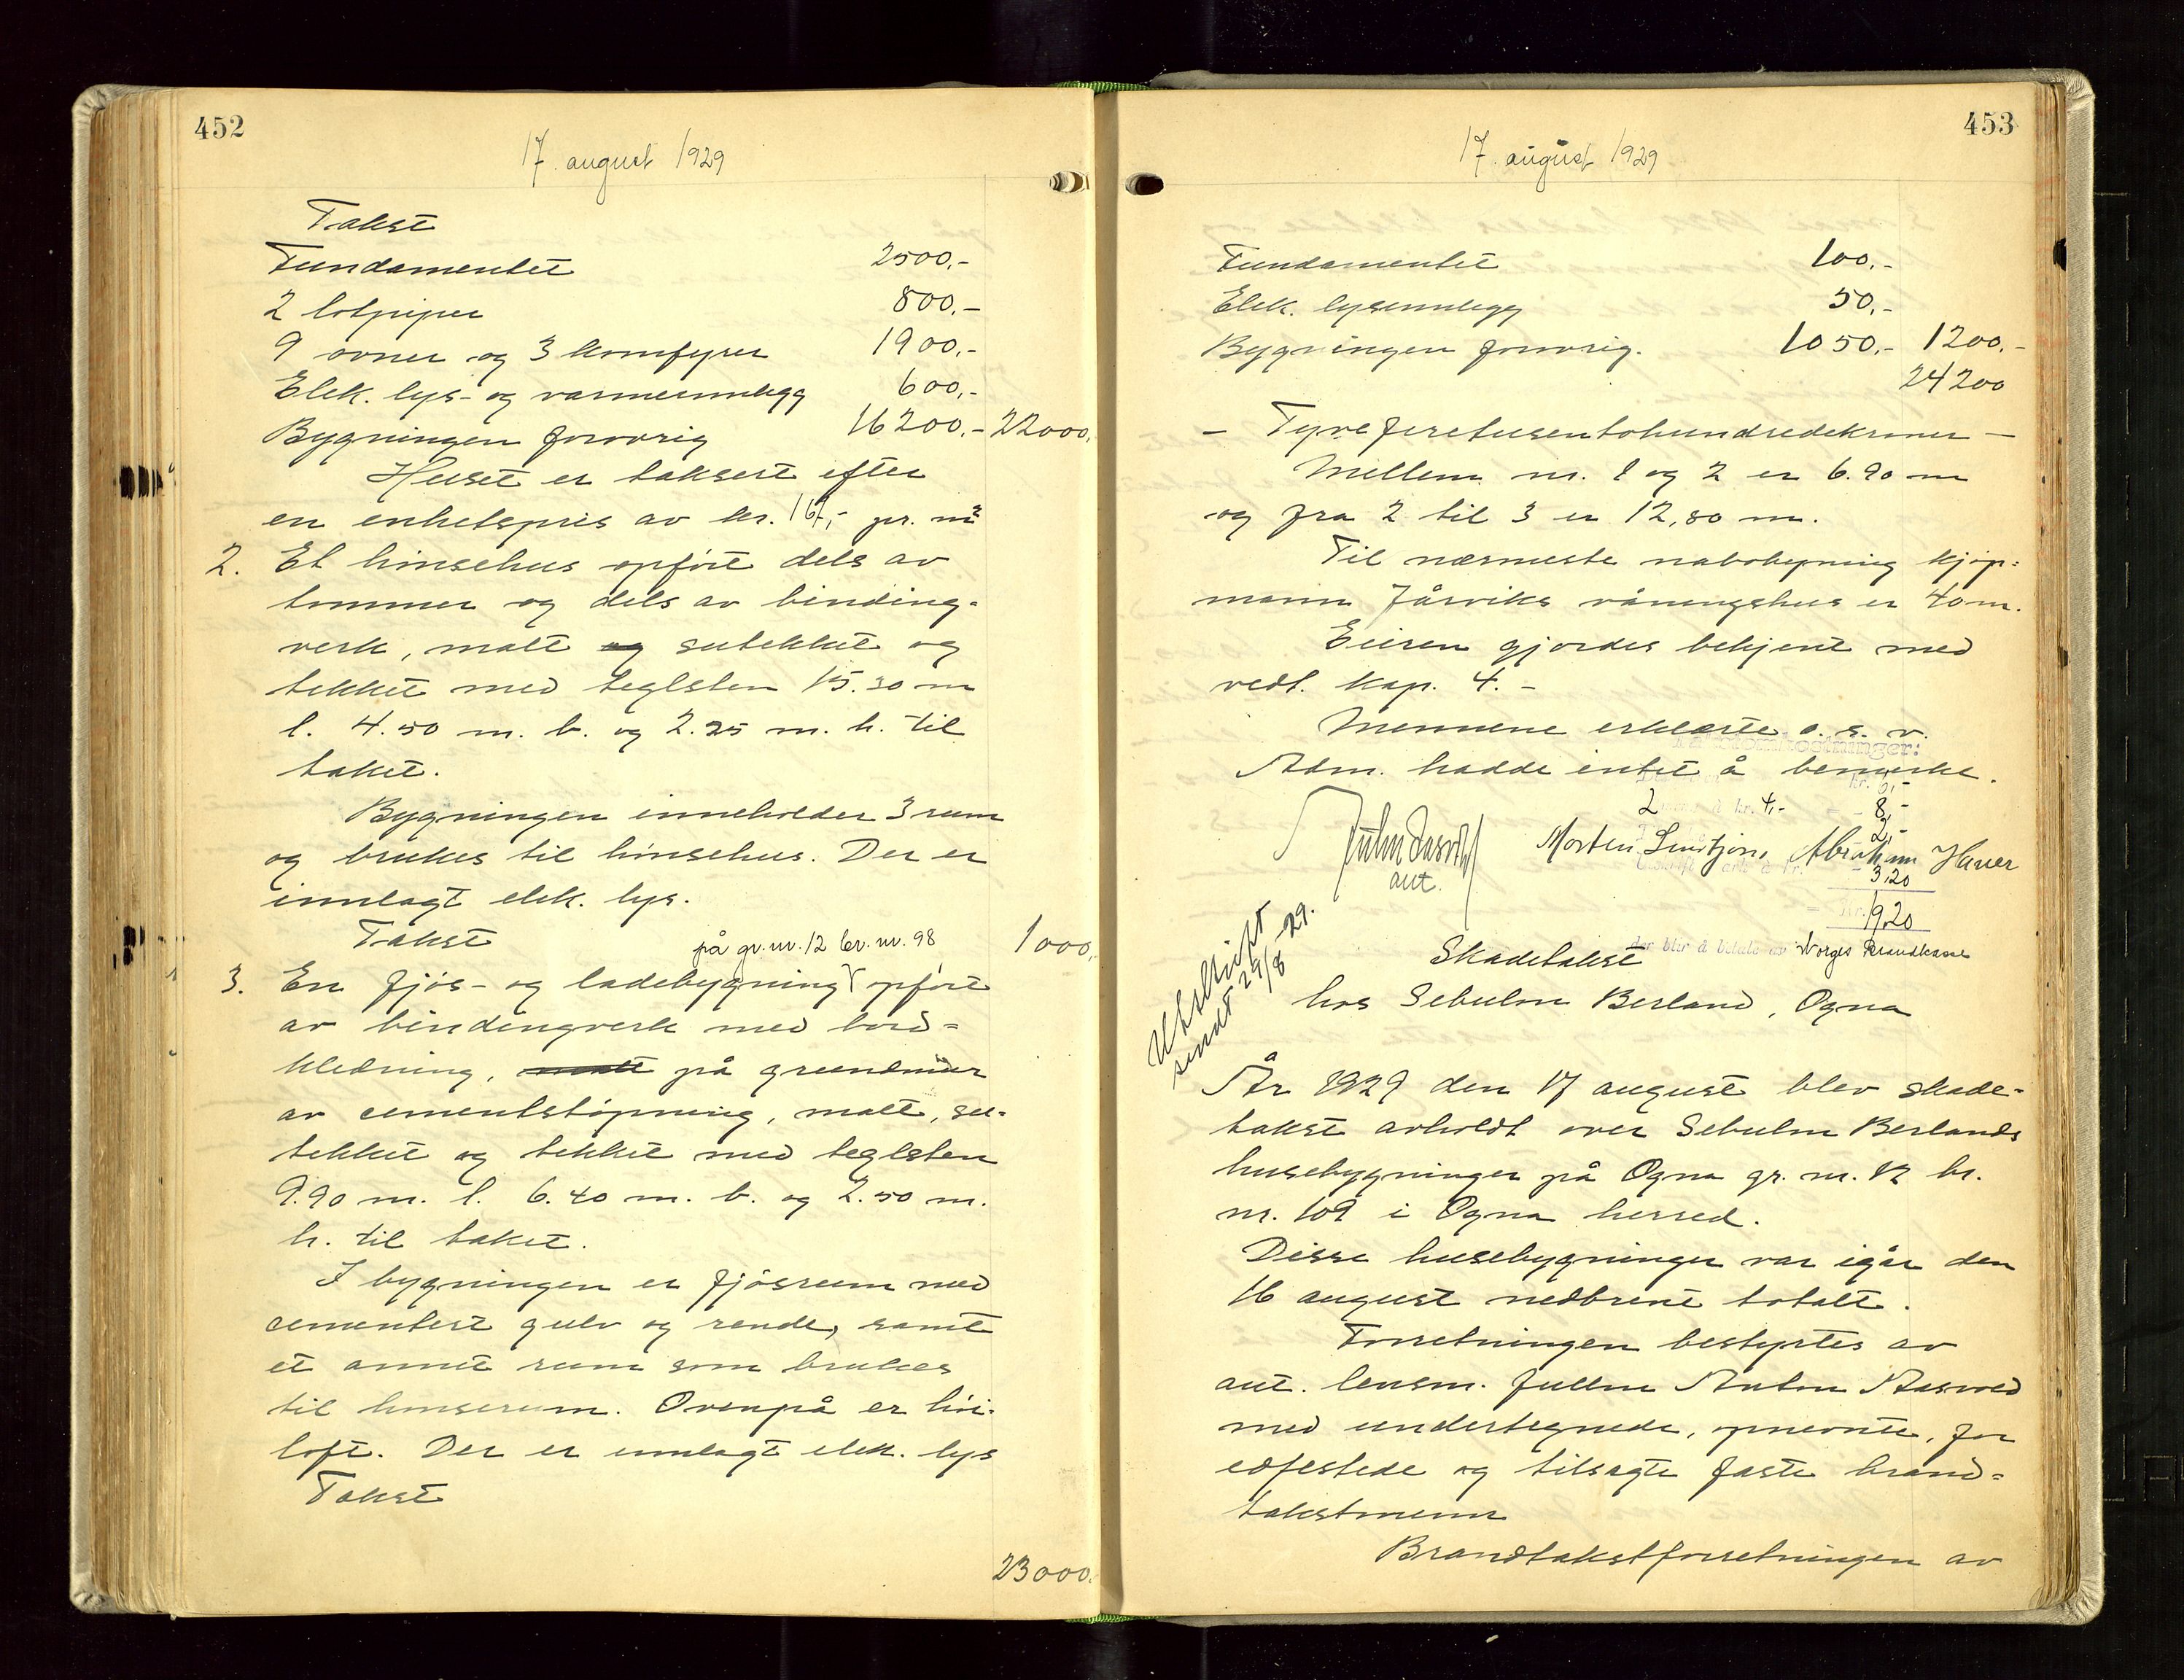 452
17. august 1929
Takst
Fundamentet 2500,-
2 lotpiper 800,-
9 ovner og 3 komfyrer 1900,-
Elek. lys- og varmeinnlegg 600,-
Bygningen forøvrig 16200,- 22000,
Huset er taksert efter
en enhetspris av kr. 167,- pr. m²
2. Et hønsehus opført dels av
tømmer og dels av binding-
verk, malt og sutekket og
tekket med teglsten 15.30 m
l. 4.50 m. b. og 2.25 m. h. til
taket.
Bygningen inneholder 3 rum
og brukes til hønsehus. Der er
innlagt elek. lys.
Takst 1000,
på gr.nr. 12 br.nr. 98
3. En fjøs- og ladebygning opført
av bindingverk med bord-
kledning, malt på grundmur
av cementstøpning, malt, su-
tekket og tekket med teglsten
9.90 m. l. 6.40 m. b. og 2.50 m.
h. til taket.
I bygningen er fjøsrum med
cementert gulv og rende, samt
et annet rum som brukes
til hønserum. Ovenpå er høi-
loft. Der er innlagt elek. lys
Takst
23000,
453
17. august 1929
Fundamentet 100,-
Elek. lysinnlegg 50,-
Bygningen forøvrig. 1050,- 1200,-
24200
- Tyvefiretusentohundredekroner -
Mellem nr. 1 og 2 er 6.90 m
og fra 2 til 3 er 12,80 m.
Til nærmeste nabobygning kjøp-
mann Jårviks våningshus er 40 m.
Eieren gjordes bekjent med
vedt. kap. 4. -
Mennene erklærte o. s. v.
Adm. hadde intet å bemerke.
kr. 6,-
2 à kr. 4,- 8,-
2,-
Morten Abraham Haver
aut.
3,20
Kr. 19,20
der blir å betale av Norges Brandkasse
Utskrift
sendt 29/8 -29.
Skadetakst
hos Sebulon Berland, Ogna
År 1929 den 17 august blev skade-
takst avholdt over Sebulon Berlands
husebygninger på Ogna gr. nr. 12 br.
nr. 109 i Ogna herred.
Disse husebygninger var igår den
16 august nedbrent totalt.
Forretningen bestyrtes av
aut. lensm. Anton Aasved
med undertegnede, opnevnte, for
edfestede og tilsagte faste brand-
takstmenn
Brandtakstforretningen av